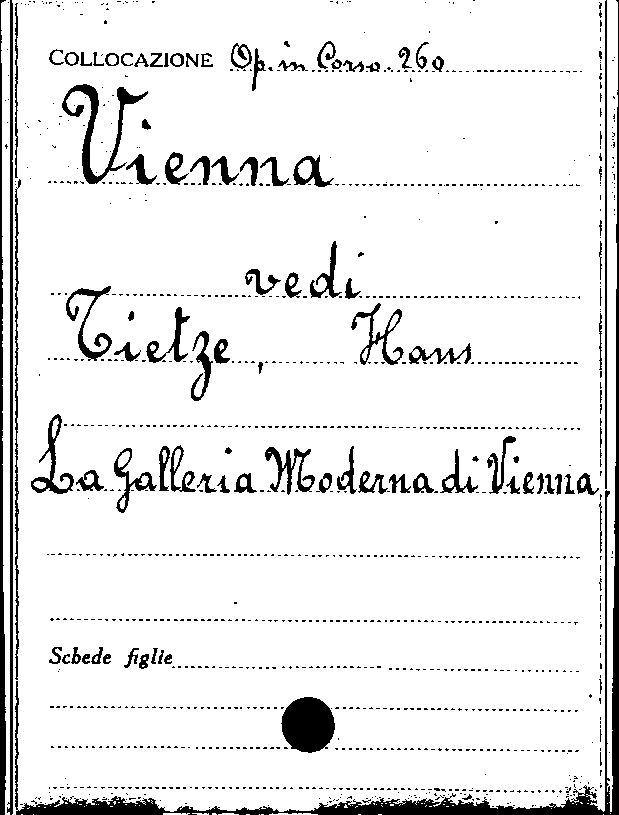 COLLOCAZIONE Op. in Corso. 260
Vienna
vedi
Tietze, Hans
La Galleria Moderna di Vienna.
Schede figlie